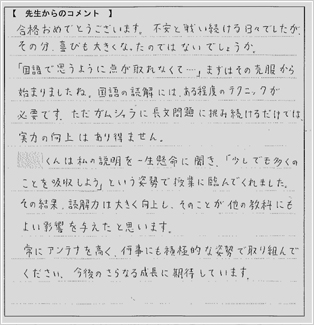 【 先生からのコメント 】
合格おめでとうございます。不安と戦い続ける日々でしたが、
その分、喜びも大きくなったのではないでしょうか。
「国語で思うように点が取れなくて…」まずはその克服から
始まりましたね。国語の読解には、ある程度のテクニックが
必要です。ただガムシャラに長文問題に挑み続けるだけでは
実力の向上はあり得ません。
くんは私の説明を一生懸命に聞き、「少しでも多くの
ことを吸収しよう」という姿勢で授業に臨んでくれました。
その結果、読解力は大きく向上し、そのことが他の教科にも
よい影響を与えたと思います。
常にアンテナを高く、行事にも積極的な姿勢で取り組んで
ください。今後のさらなる成長に期待しています。